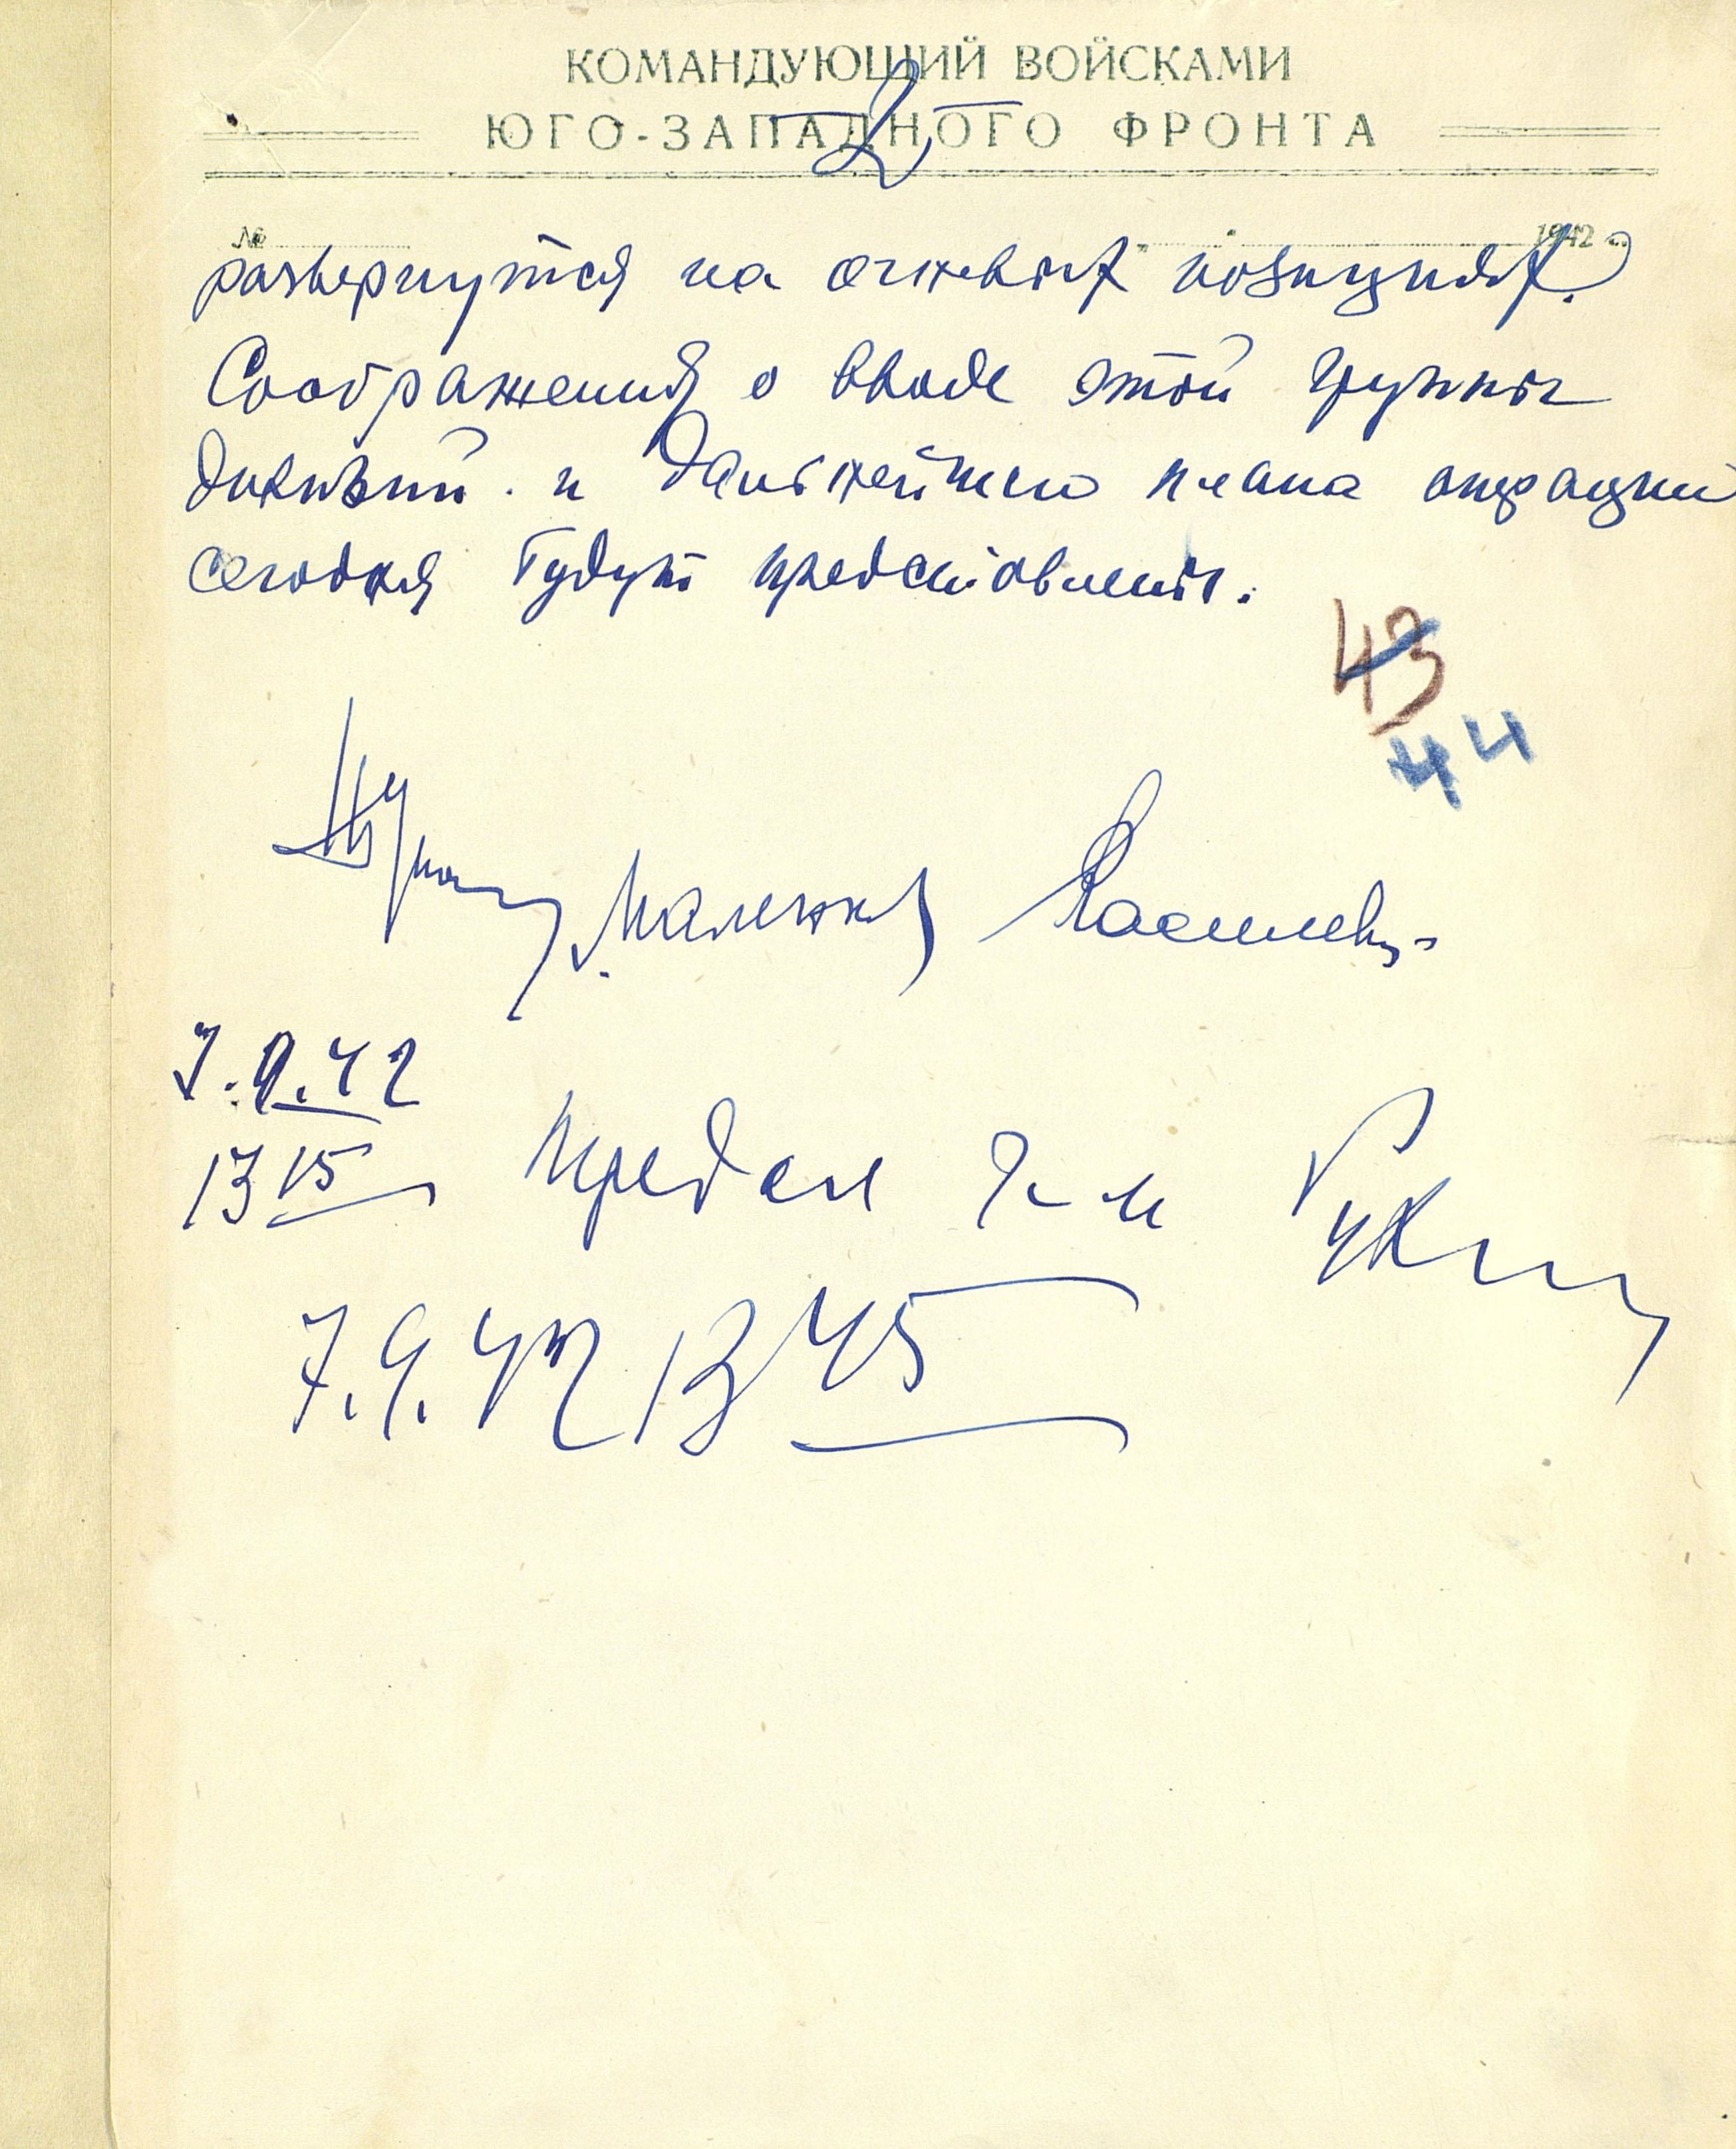 КОМАНДУЮЩИЙ ВОЙСКАМИ
ЮГО-ЗАПАДНОГО ФРОНТА
2
№ 1942 г.
развернутся на огневых позициях.
Соображения о вводе этой группы
дивизий и дальнейшего плана операции
сегодня будут представлены.
43
44
Жуков Маленков Василевск
7.9.42
13 15 Передал г-м
7.9.42 13 45